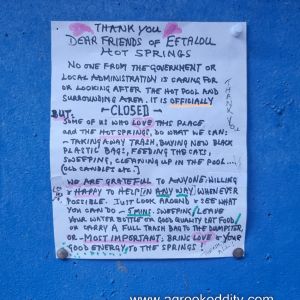 THANK YOU
DEAR FRIENDS OF EFTALOU
HOT SPRINGS
NO ONE FROM THE GOVERNMENT OR
LOCAL ADMINISTRATION IS CARING FOR
OR LOOKING AFTER THE HOT POOL AND
SURROUNDING AREA. IT IS OFFICIALLY
CLOSED
THANK YOU
BUT:
SOME OF US WHO LOVE THIS PLACE
AND THE HOT SPRINGS, DO WHAT WE CAN:
- TAKING AWAY TRASH, BUYING NEW BLACK
PLASTIC BAGS, FEEDING THE CATS,
SWEEPING, CLEANING UP IN THE POOL....
(OLD CANDLES ETC.)
WE ARE GRATEFUL TO ANYONE WILLING
& HAPPY TO HELP IN ANY WAY WHENEVER
POSSIBLE. JUST LOOK AROUND & SEE WHAT
YOU CAN DO - 5 MINS. SWEEPING / LEAVE
YOUR WATER BOTTLE OR GOOD QUALITY CAT FOOD /
OR CARRY A FULL TRASH BAG TO THE DUMPSTER,
OR - MOST IMPORTANT: BRING LOVE & YOUR
GOOD ENERGY TO THE SPRINGS
www.agreekoddity.com